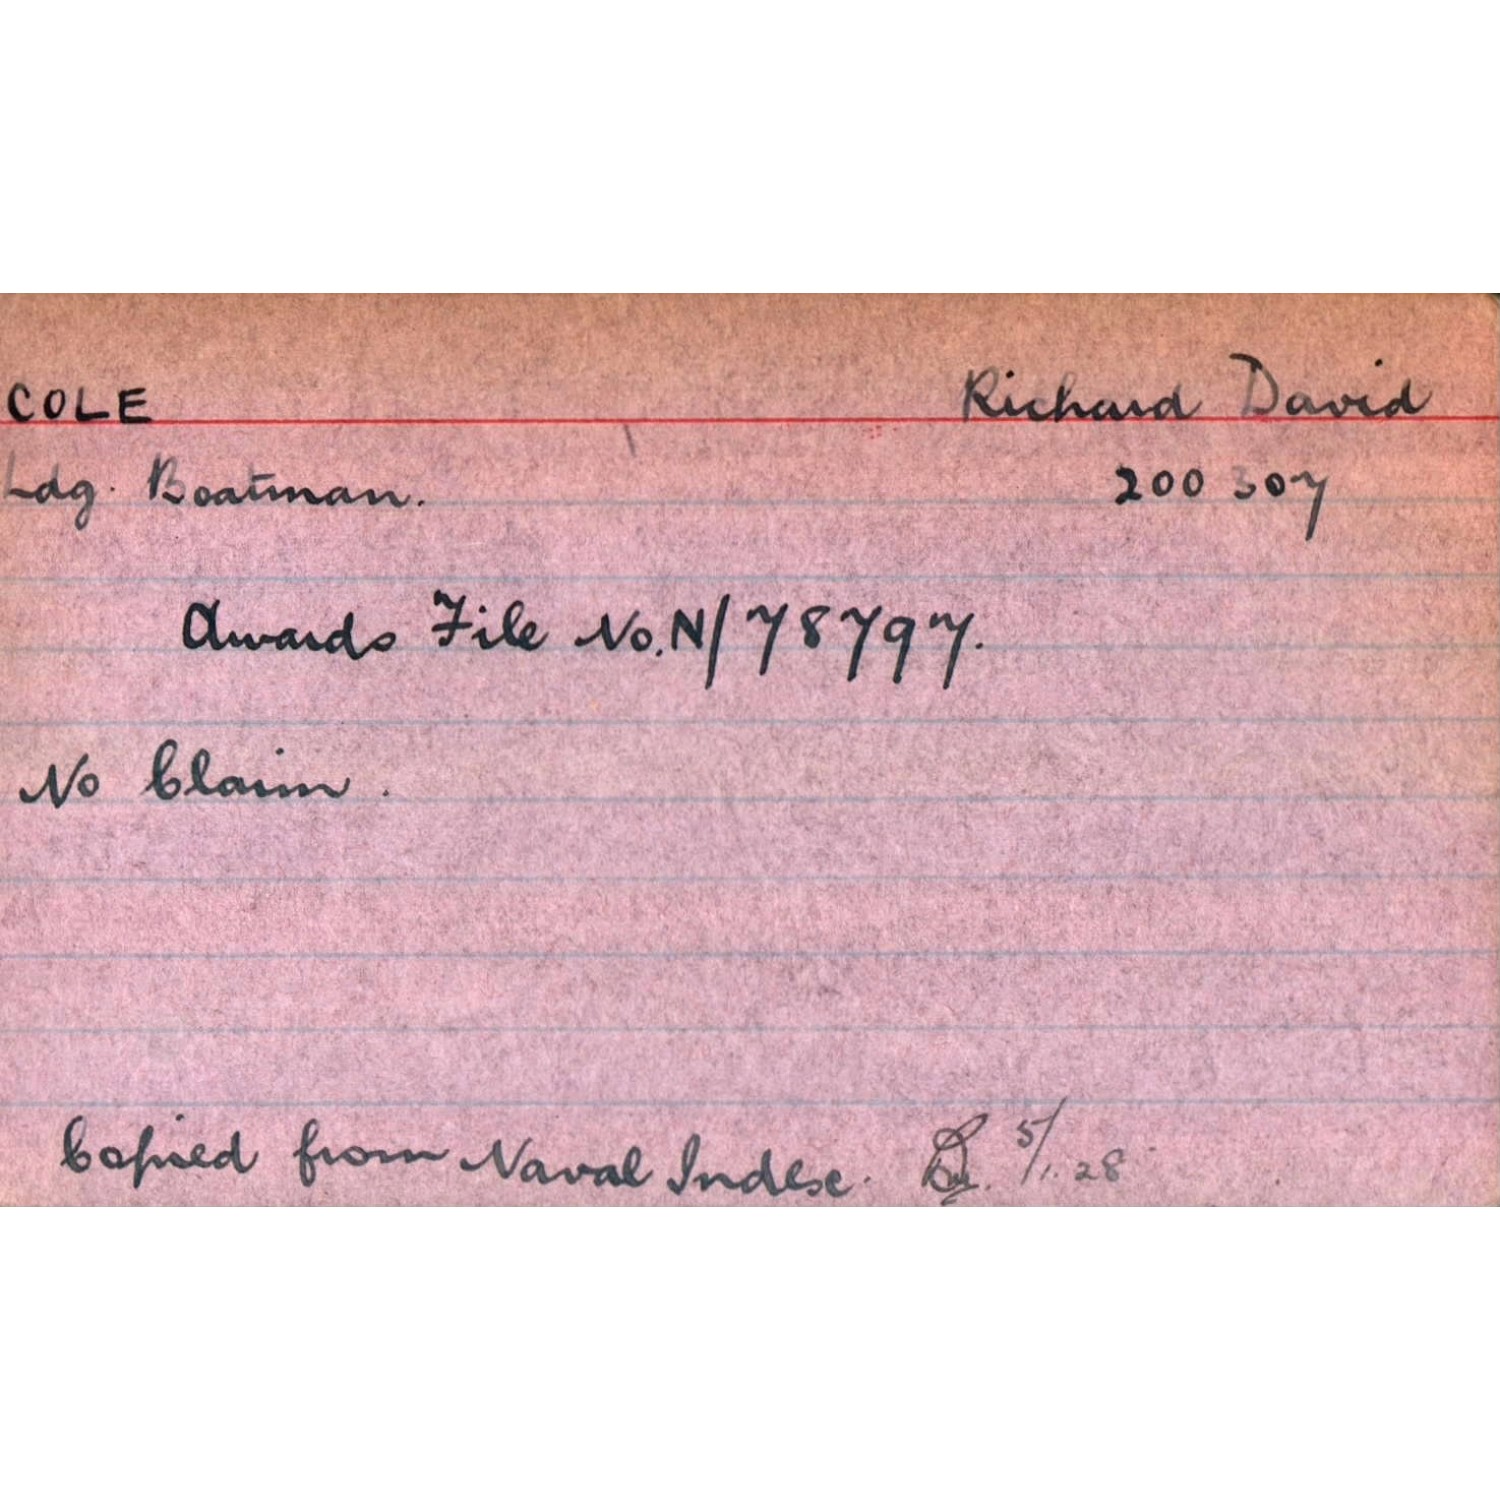 COLE Richard David
Ldg. Boatman. 200 307
Awards File No. N/78797.
No Claim.
Copied from Naval Index. 5/1.28